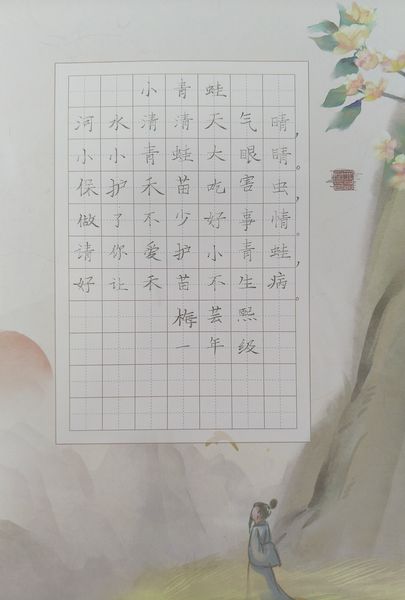 小青蛙
河水清清天气晴，
小小青蛙大眼睛。
保护禾苗吃害虫，
做了不少好事情。
请你爱护小青蛙，
好让禾苗不生病。
梅芸熙
一年级